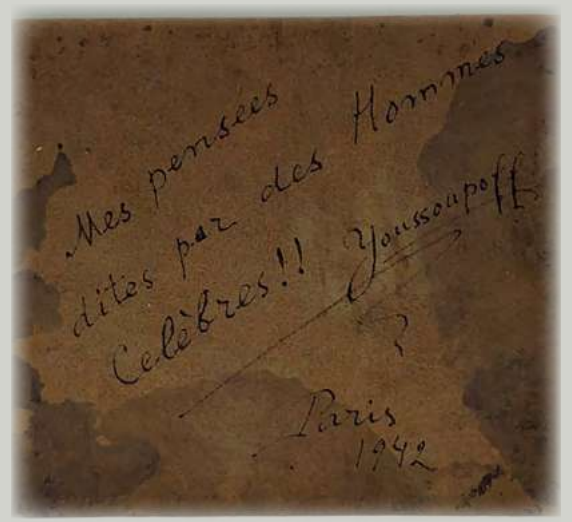 Mes pensées
dites par des Hommes
Celèbres!! Youssoupoff
Paris
1942